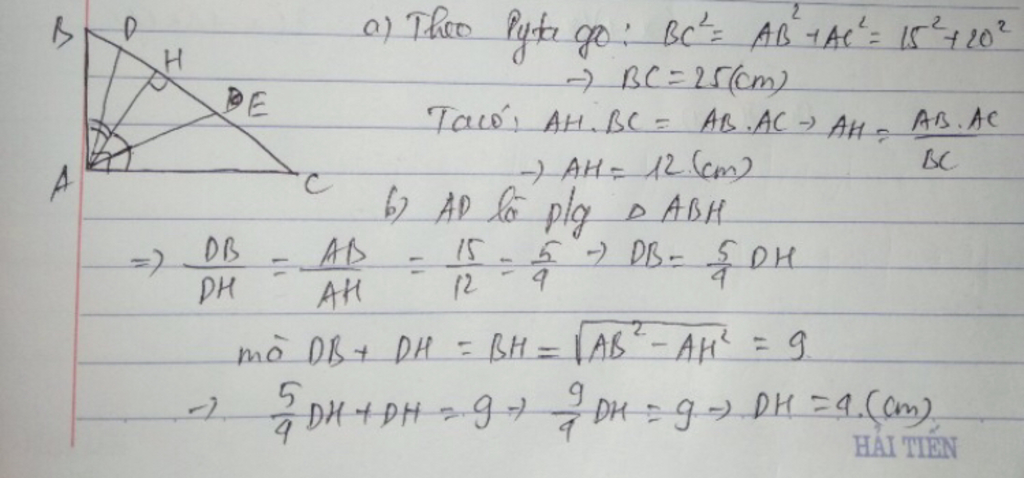 a) Theo Pytago: BC² = AB² + AC² = 15² + 20²
→ BC = 25 (cm)
Ta có: AH.BC = AB.AC → AH = AB.AC / BC
→ AH = 12 (cm)
B D H E A C
b) AD là p/g △ ABH
⇒ DB/DH = AB/AH = 15/12 = 5/4 → DB = 5/4 DH
mà DB + DH = BH = √(AB² − AH²) = 9
→ 5/4 DH + DH = 9 → 9/4 DH = 9 → DH = 4. (cm)
HẢI TIẾN